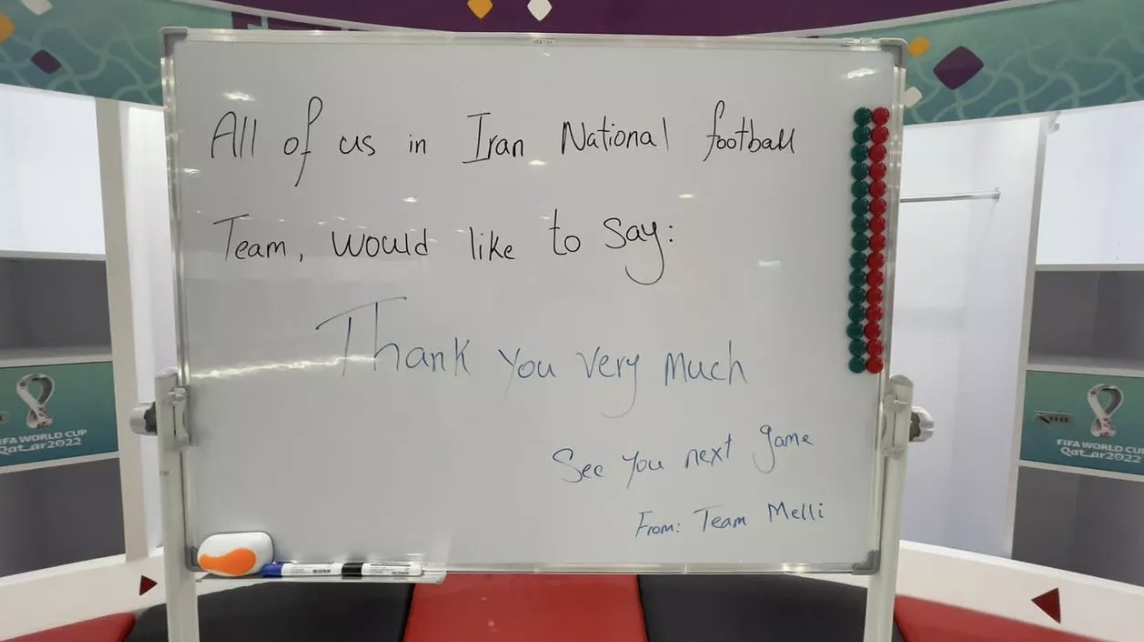 All of us in Iran National football
Team, would like to say:
Thank you very much
See you next game
From: Team Melli
FIFA WORLD CUP
Qatar2022
FIFA WORLD CUP
Qatar2022